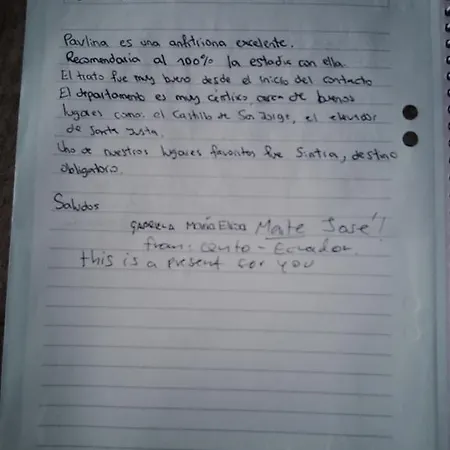 Paulina es una anfitriona excelente.
Recomendaria al 100% la estadia con ella.
El trato fue muy bueno desde el inicio del contacto
El departamento es muy céntrico, cerca de buenos
lugares como: el Castillo de San Jorge, el elevador
de Santa Justa.
Uno de nuestros lugares favoritos fue Sintra, destino
obligatorio.
Saludos
GABRIELA María Elisa Mate José!
from: - Ecuador.
this is a present for you